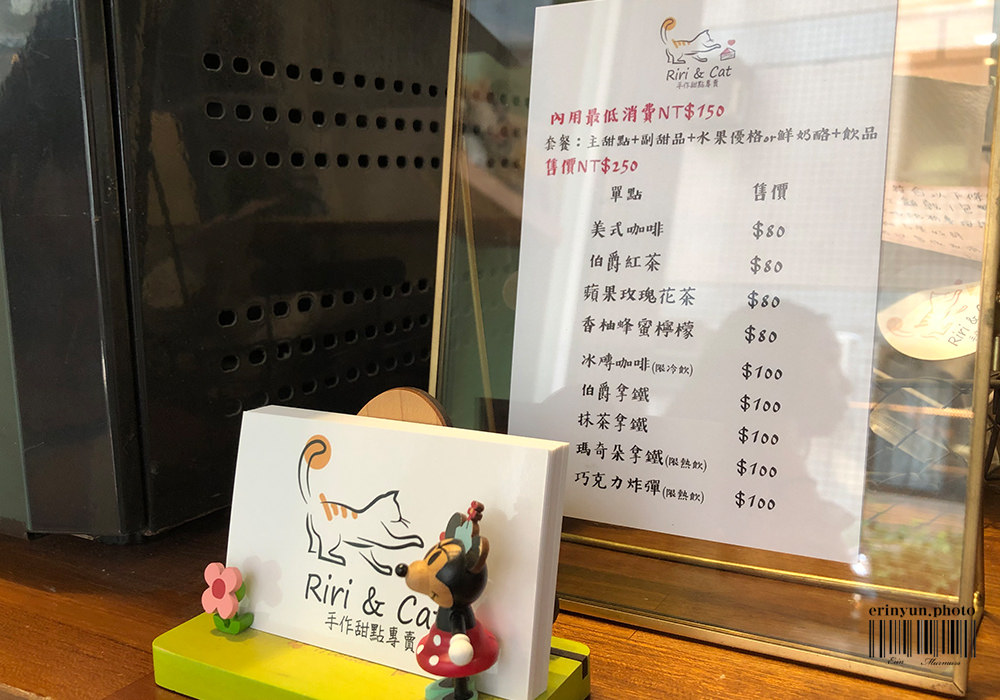 Riri & Cat
手作甜點專賣
內用最低消費NT$150
套餐：主甜點+副甜品+水果優格or鮮奶酪+飲品
售價NT$250
單點 售價
美式咖啡 $80
伯爵紅茶 $80
蘋果玫瑰花茶 $80
香柚蜂蜜檸檬 $80
冰磚咖啡(限冷飲) $100
伯爵拿鐵 $100
抹茶拿鐵 $100
瑪奇朵拿鐵(限熱飲) $100
巧克力炸彈(限熱飲) $100
Riri & Cat
手作甜點專賣
Riri & C
erinyun.photo
Erin Murmursi